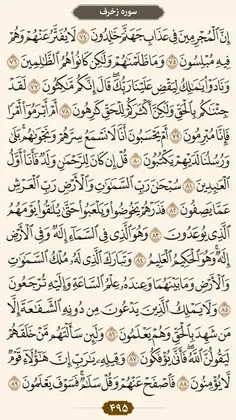 سوره زخرف
إِنَّ ٱلْمُجْرِمِينَ فِى عَذَابِ جَهَنَّمَ خَٰلِدُونَ ٧٤ لَا يُفَتَّرُ عَنْهُمْ وَهُمْ
فِيهِ مُبْلِسُونَ ٧٥ وَمَا ظَلَمْنَٰهُمْ وَلَٰكِن كَانُوا۟ هُمُ ٱلظَّٰلِمِينَ ٧٦
وَنَادَوْا۟ يَٰمَٰلِكُ لِيَقْضِ عَلَيْنَا رَبُّكَ قَالَ إِنَّكُم مَّٰكِثُونَ ٧٧ لَقَدْ
جِئْنَٰكُم بِٱلْحَقِّ وَلَٰكِنَّ أَكْثَرَكُمْ لِلْحَقِّ كَٰرِهُونَ ٧٨ أَمْ أَبْرَمُوٓا۟ أَمْرًا
فَإِنَّا مُبْرِمُونَ ٧٩ أَمْ يَحْسَبُونَ أَنَّا لَا نَسْمَعُ سِرَّهُمْ وَنَجْوَىٰهُم بَلَىٰ
وَرُسُلُنَا لَدَيْهِمْ يَكْتُبُونَ ٨٠ قُلْ إِن كَانَ لِلرَّحْمَٰنِ وَلَدٌ فَأَنَا۠ أَوَّلُ
ٱلْعَٰبِدِينَ ٨١ سُبْحَٰنَ رَبِّ ٱلسَّمَٰوَٰتِ وَٱلْأَرْضِ رَبِّ ٱلْعَرْشِ
عَمَّا يَصِفُونَ ٨٢ فَذَرْهُمْ يَخُوضُوا۟ وَيَلْعَبُوا۟ حَتَّىٰ يُلَٰقُوا۟ يَوْمَهُمُ
ٱلَّذِى يُوعَدُونَ ٨٣ وَهُوَ ٱلَّذِى فِى ٱلسَّمَآءِ إِلَٰهٌ وَفِى ٱلْأَرْضِ
إِلَٰهٌ وَهُوَ ٱلْحَكِيمُ ٱلْعَلِيمُ ٨٤ وَتَبَارَكَ ٱلَّذِى لَهُۥ مُلْكُ ٱلسَّمَٰوَٰتِ
وَٱلْأَرْضِ وَمَا بَيْنَهُمَا وَعِندَهُۥ عِلْمُ ٱلسَّاعَةِ وَإِلَيْهِ تُرْجَعُونَ ٨٥
وَلَا يَمْلِكُ ٱلَّذِينَ يَدْعُونَ مِن دُونِهِ ٱلشَّفَٰعَةَ إِلَّا
مَن شَهِدَ بِٱلْحَقِّ وَهُمْ يَعْلَمُونَ ٨٦ وَلَئِن سَأَلْتَهُم مَّنْ خَلَقَهُمْ
لَيَقُولُنَّ ٱللَّهُ فَأَنَّىٰ يُؤْفَكُونَ ٨٧ وَقِيلِهِۦ يَٰرَبِّ إِنَّ هَٰٓؤُلَآءِ قَوْمٌ
لَّا يُؤْمِنُونَ ٨٨ فَٱصْفَحْ عَنْهُمْ وَقُلْ سَلَٰمٌ فَسَوْفَ يَعْلَمُونَ ٨٩
۴۹۵